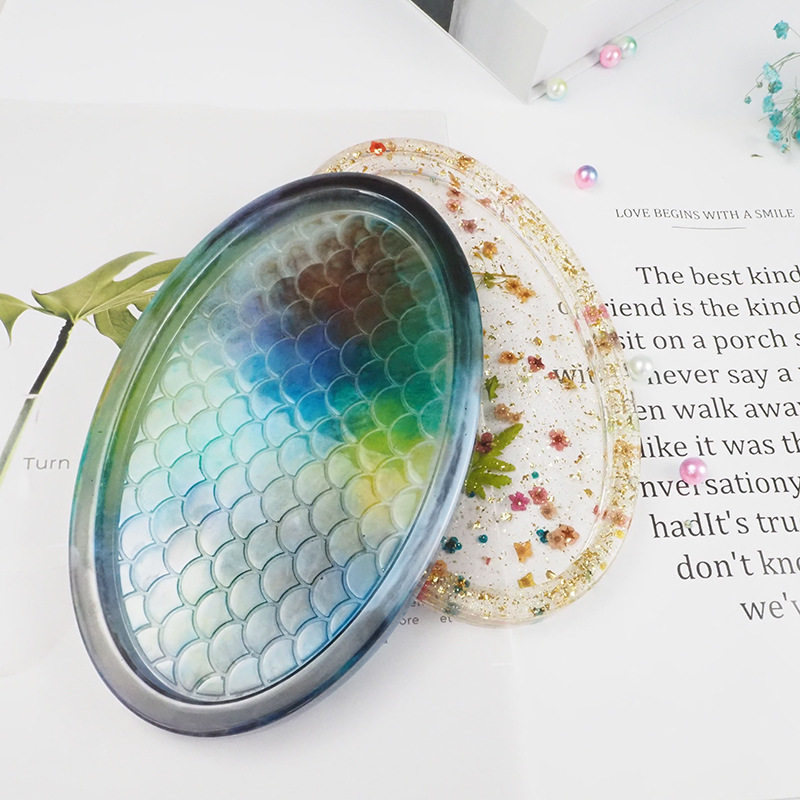 LOVE BEGINS WITH A SMILE
The best kind
friend is the kind
sit on a porch
never say a
walk away
like it was th
had It's tru
don't kno
we'v
Turn
ore et